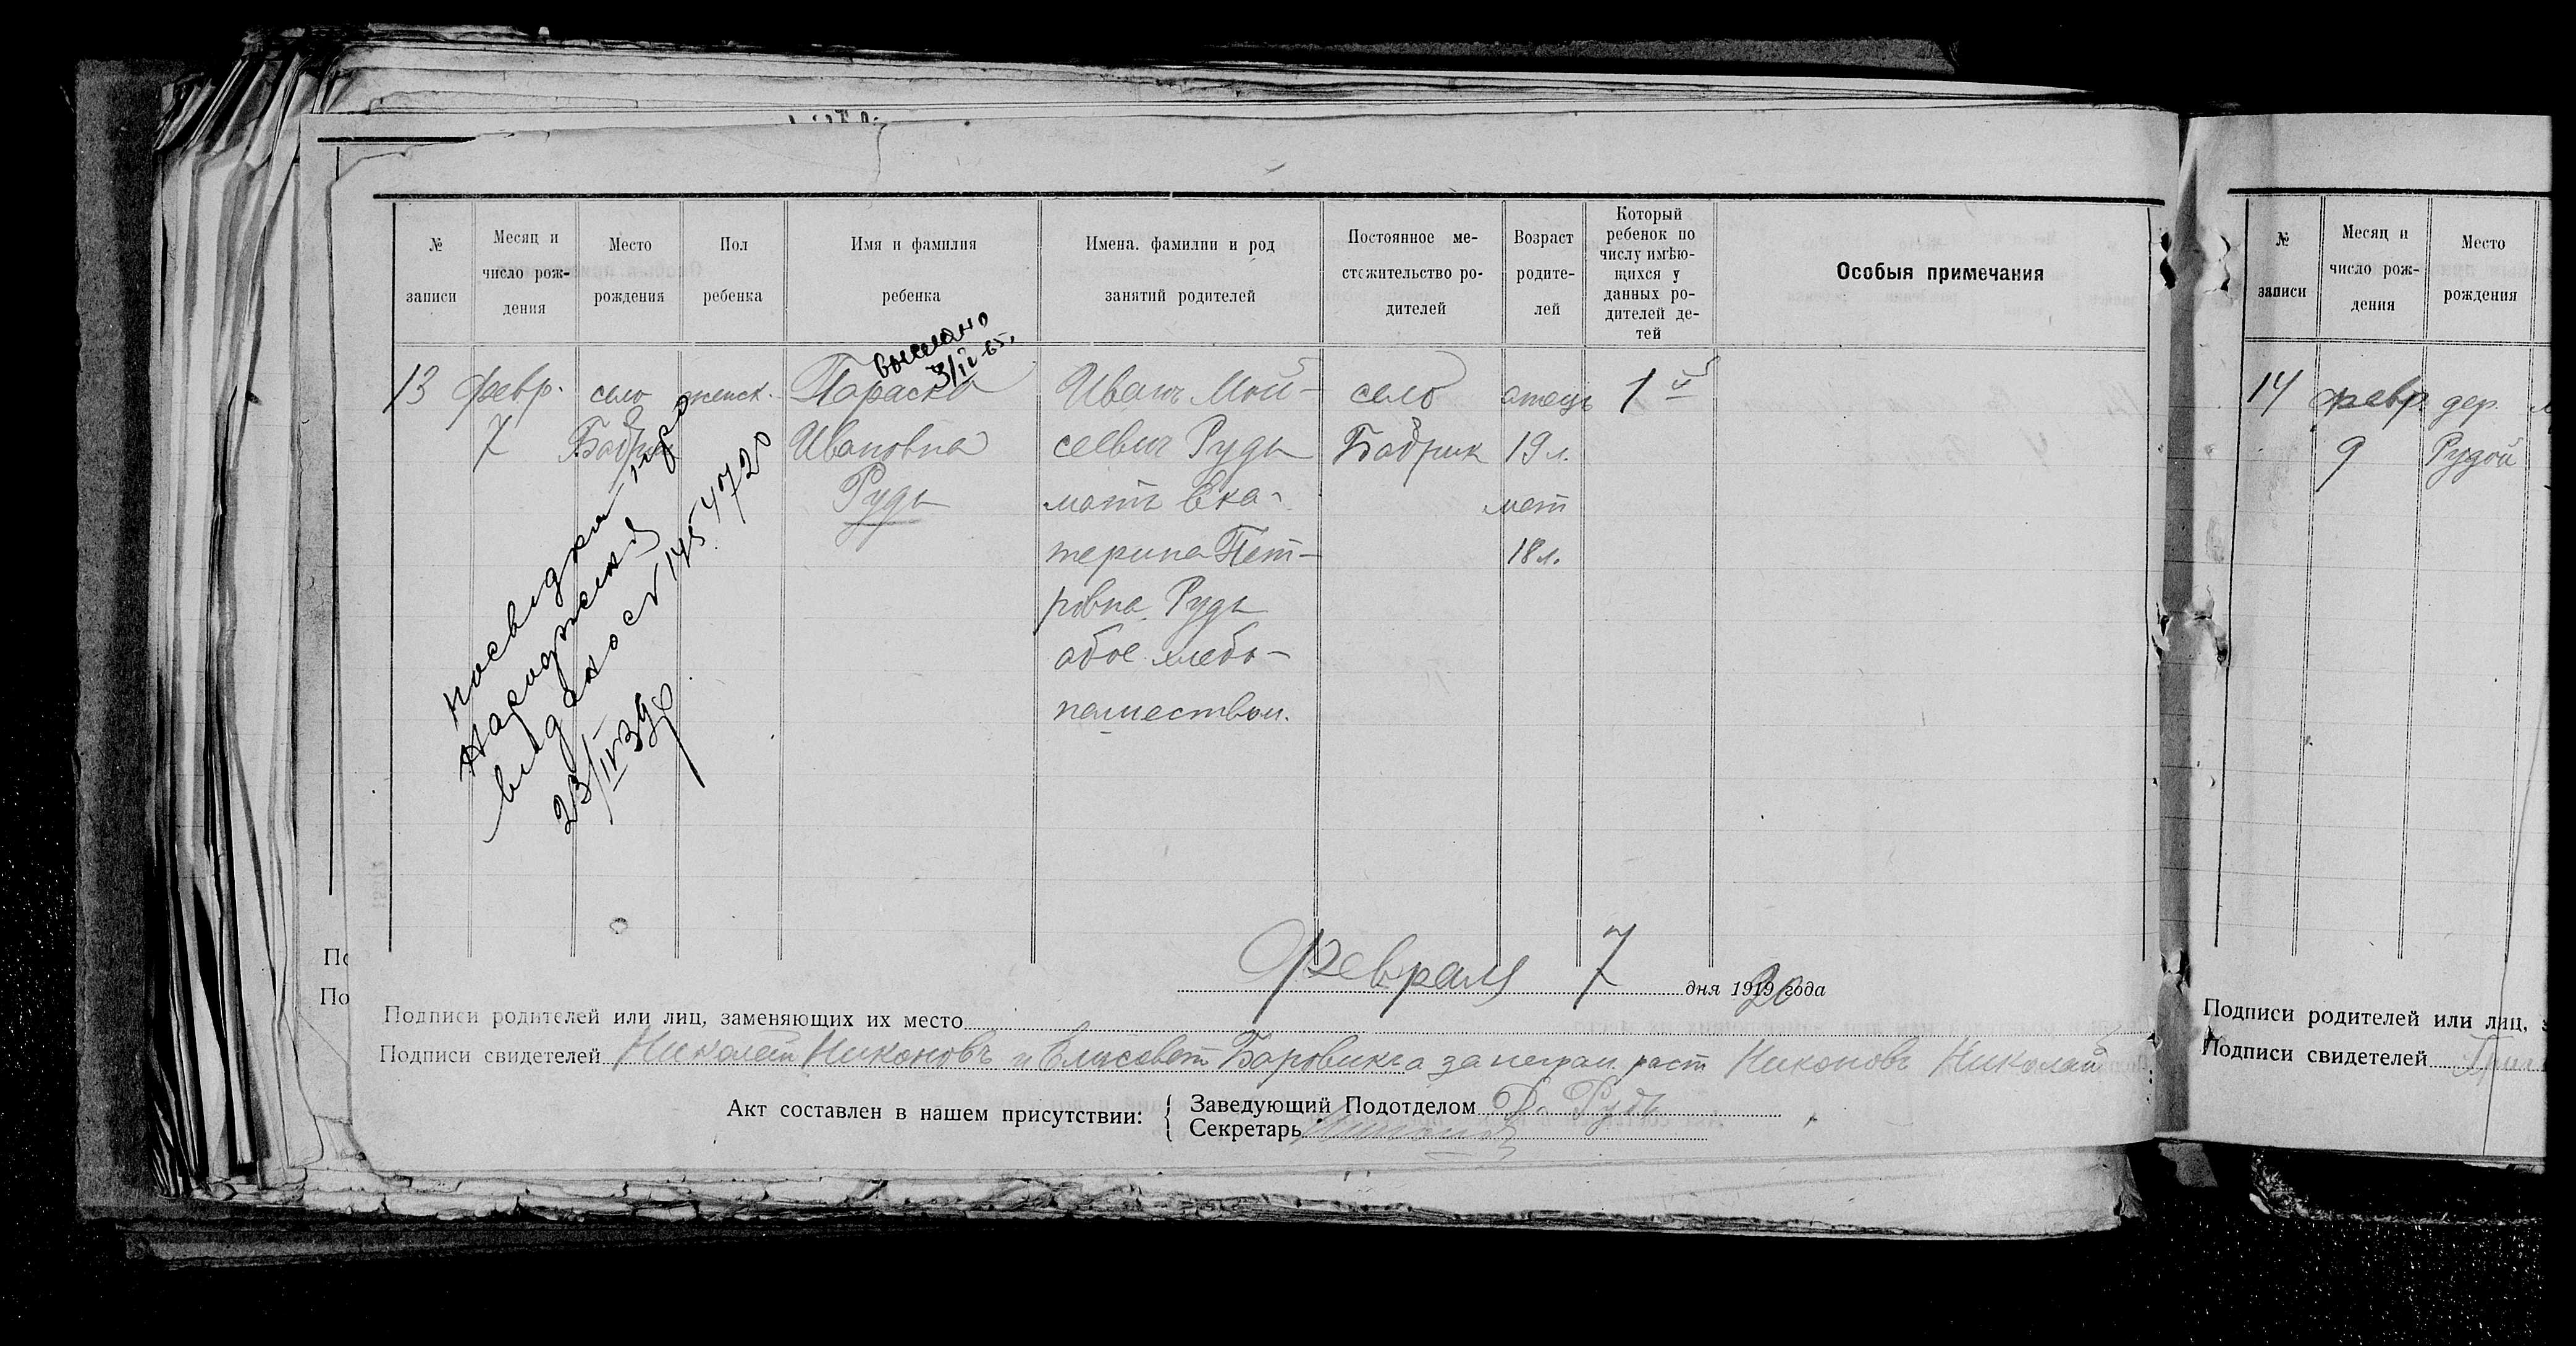 № записи
Месяц и число рождения
Место рождения
Пол ребенка
Имя и фамилия ребенка
Имена. фамилии и род занятий родителей
Постоянное местожительство родителей
Возраст родителей
Который ребенок по числу имѣющихся у данных родителей детей
Особыя примечания
выслано
3/IV-65.
13
февр.
7
село
женск.
Параска
Ивановна
Рудь
Иванъ Мой-
сеевич Рудь
мать Ека-
терина Пет-
ровна Рудь
обое хлебо-
пашеством.
село
Бобрик
отець
19 л.
мат
18 л.
1й
посвидку про
народження
видано
145 4720
23/IV 39р
Февраля 7 дня 1919 года
20
Подписи родителей или лиц, заменяющих их место
Подписи свидетелей Николай Никоновъ и Елисавет за неграм. раст Никоновъ Николай
Акт составлен в нашем присутствии:
Заведующий Подотделом Рудь
Секретарь
№ записи
Месяц и число рождения
Место рождения
14
февр
9
дер.
Рудой
Подписи родителей или лиц,
Подписи свидетелей
По
По